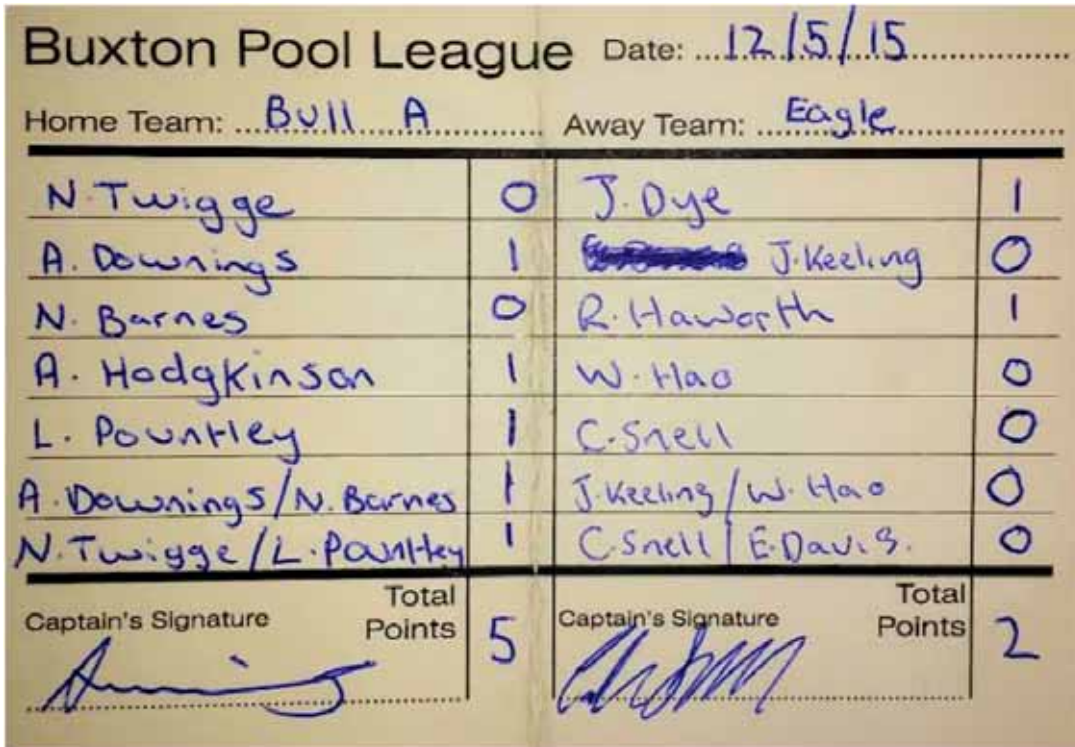 Buxton Pool League Date: 12/5/15
Home Team: Bull A Away Team: Eagle
N. Twigge 0 J. Dye 1
A. Downings 1 J. Keeling 0
N. Barnes 0 R. Haworth 1
A. Hodgkinson 1 W. Hao 0
L. Pountley 1 C. Snell 0
A. Downings/N. Barnes 1 J. Keeling/W. Hao 0
N. Twigge/L. Pountley 1 C. Snell/E. Davis. 0
Captain's Signature Total Points 5 Captain's Signature Total Points 2